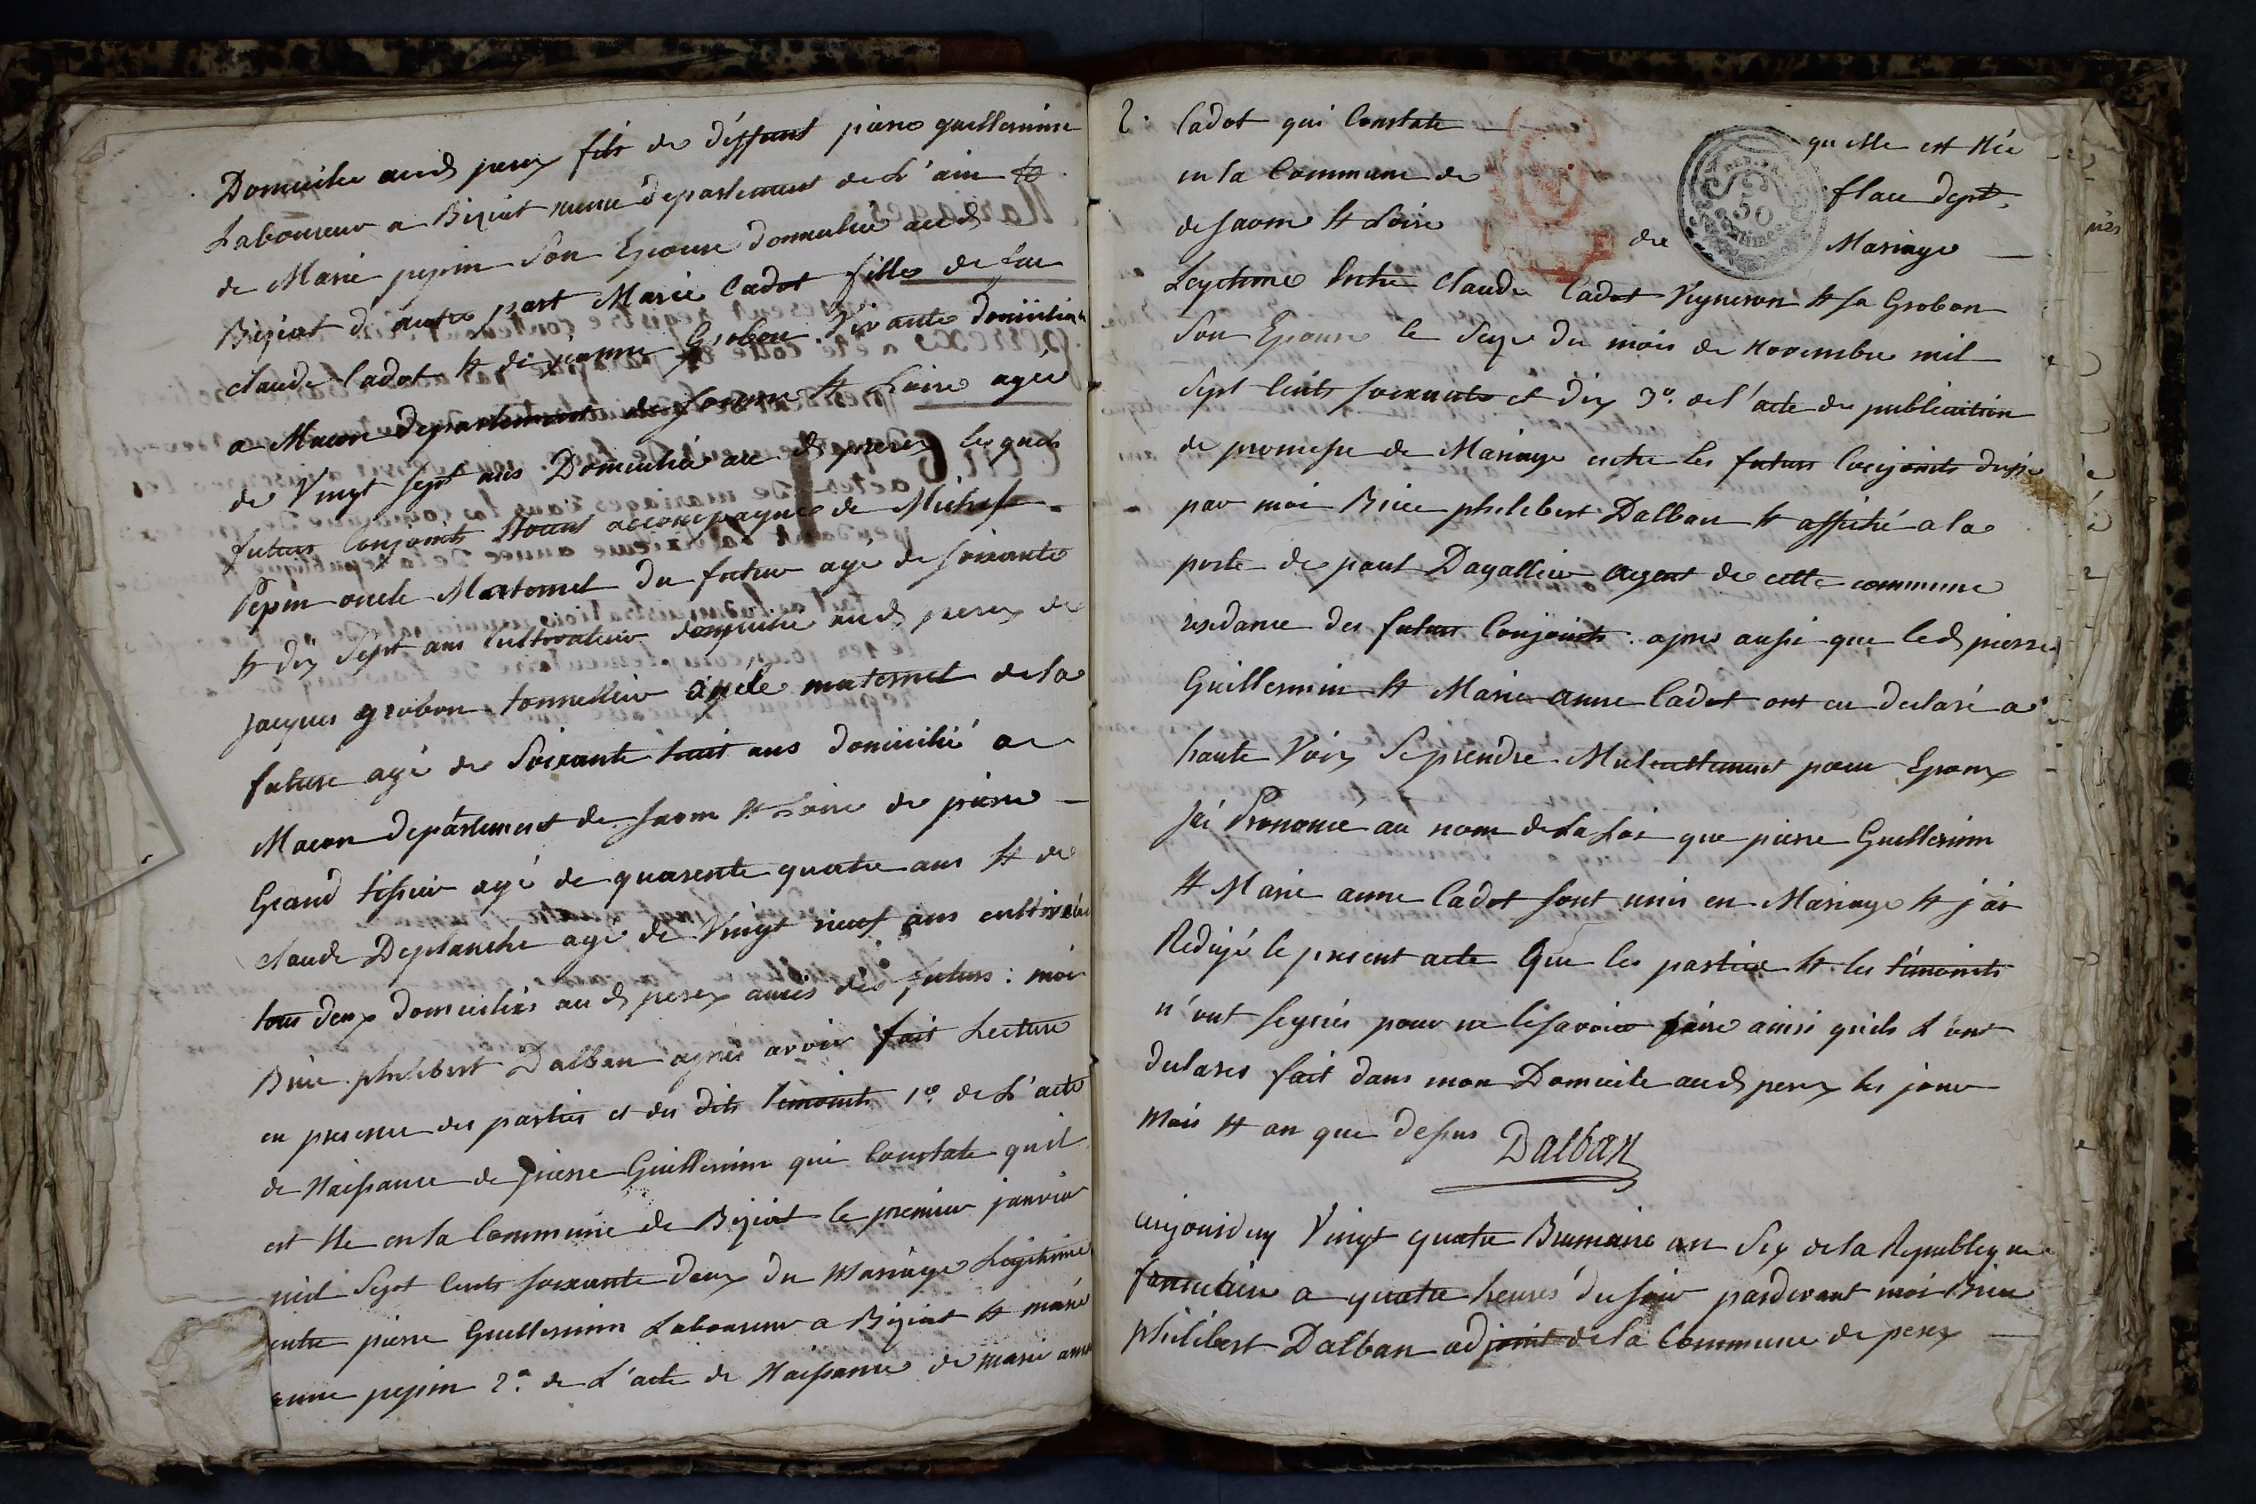 Domicilié aud perex fils de deffunt pierre guillermin
Laboureur a Biziat meme departement de L'ain &
de Marie pepin Son Epouse domiciliée aud
Biziat d'autre part Marie Cadot fille de feu
claude Cadot & de jeanne Grobon Vivante domiciliée
a Macon departement de saone & Loire agée
de Vingt sept ans Domiciliée au d perex lesquels
futurs Conjoints Etant accompagnés de Michel
Pepin oncle Maternel du futur agé de soixante
& dix Sept ans Cultivateur domicilié aud perex de
jacques grobon tonnellier oncle maternel de la
future agé de Soixante huit ans domicilié a
Macon departement de saone & Loire de pierre
Grand tissier agé de quarente quatre ans & de
claude Deplanche agé de Vingt neuf ans cultivateur
tous deux domiciliés au d perex amis des futurs : moi
Brice philibert Dalban après avoir fait Lecture
en presence des parties et des dits temoints 1º de L'acte
de Naissance de pierre Guillermin qui Constate qu'il
est Né en la Commune de Biziat le premier janvier
mil Sept Cents soixante deux du Mariage Legitime
entre pierre Guillermin Laboureur a Biziat & marie
anne pepin 2º de L'acte de Naissance de marie anne
2. Cadot qui Constate qu'elle est Née
en la Commune de flacé dept
de saone & Loire de Mariage
Legitime Entre Claude Cadot Vigneron & sa Grobon
Son Epouse le Seize du mois de Novembre mil
Sept Cents soixante et dix 3º de l'acte de publication
de promesse de Mariage entre les futurs Conjoints dressé
par moi Brice philibert Dalban & affiché a la
porte de paul Dagallier agent de cette commune
residance des futurs Conjoints : apres aussi que led pierre
Guillermin & Marie anne Cadot ont eu declaré a
haute Voix Se prendre Mutuellement pour Epoux
J'ai Prononcé au nom de La Loi que pierre Guillermin
& Marie anne Cadot sont unis en Mariage & j'ai
Redigé le present acte Que les parties & les témoints
n'ont signés pour ne le savoir faire ainsi quils L'ont
declarés fait dans mon Domicile aud perex les jour
Mois & an que dessus Dalban
aujourduy Vingt quatre Brumaire an Six de la Republique
francaise a quatre heures du soir pardevant moi Brice
philibert Dalban adjoint de la Commune de perex
50